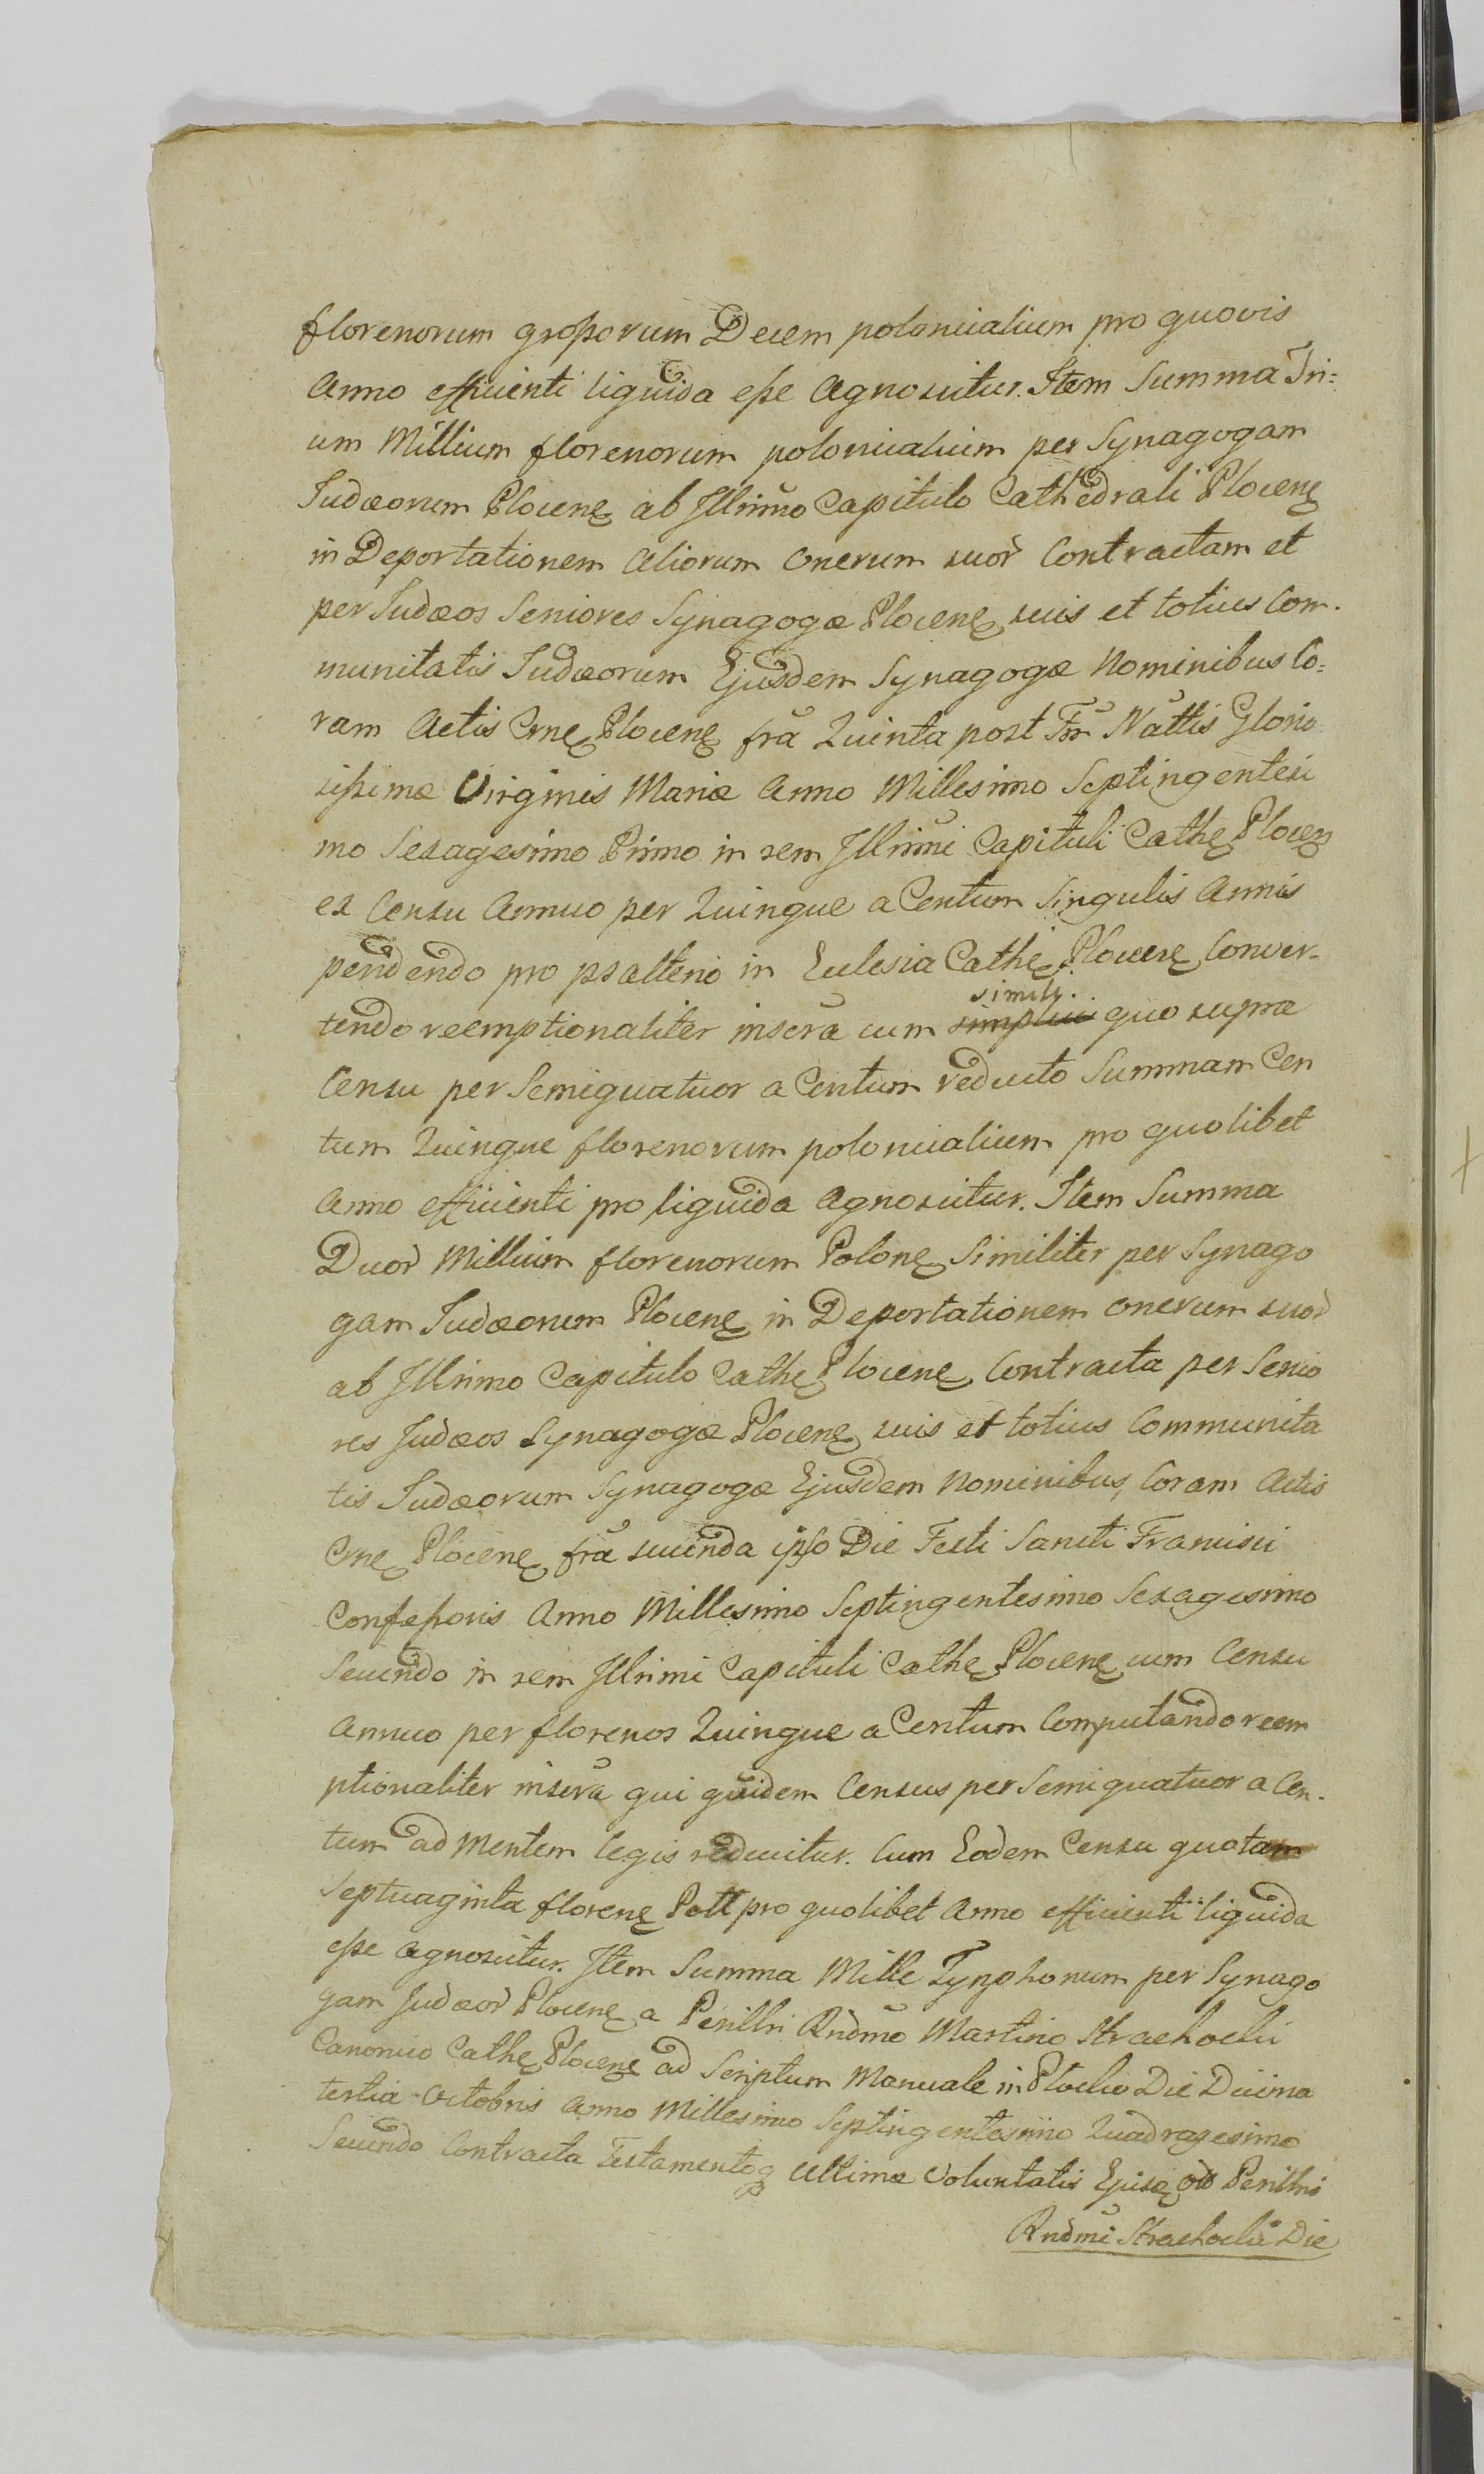 florenorum grossorum Decem polonicalium pro quovis
Anno efficienti liquida esse Agnoscitur. Item Summa Tri=
um Millium florenorum polonicalium per Synagogam
Judæorum Plocenę ab Illrimo Capitulo Cathedrali Plocenę
in Deportationem Aliorum Onerum suor̃ Contractam et
per Judæos Seniores Synagogæ Plocenę suis et totius Com-
munitatis Judæorum Ejusdem Synagogæ Nominibus Co=
ram Actis Crnę Plocenę frã Quinta post Fm̃ Nãttis Glorio
sissimæ Virginis Mariæ Anno Millesimo Septingentesi
mo Sexagesimo Primo in rem Illrimi Capituli Cathę Plocen
ex Censu Annuo per Quinque a Centum Singulis Annis
pendendo pro psalterio in Ecclesia Cathę Plocenę Conver-
tendo reemptionaliter inscrã cum simplici simili. quo supra
Censu per Semiquatuor a Centum reducto Summam Cen
tum Quinque florenorum polonicalium pro quolibet
Anno efficienti pro liquida Agnoscitur. Item Summa
Duor̃ Millium florenorum Polonę Similiter per Synago
gam Judæorum Plocenę in Deportationem onerum suor̃
ab Illrimo Capitulo Cathę Plocenę Contracta per Senio
res Judæos Synagogæ Plocenę suis et totius Communita
tis Judæorum Synagogæ Ejusdem Nominibus, Coram Actis
Crnę Plocenę frã secunda ipso Die Festi Sancti Francisci
Confessoris Anno Millesimo Septingentesimo Sexagesimo
Secundo in rem Illrimi Capituli Cathę Plocenę cum Censu
Annuo per florenos Quinque a Centum Computando reem
ptionaliter inscrã qui quidem Census per Semiquatuor a Cen-
tum ad Mentem legis reducitur. Cum Eodem Censu quotam
Septuaginta florenę Poll pro quolibet Anno efficienti liquida
esse Agnoscitur. Item Summa Mille Tynphonum per Synago
gam Judæor̃ Plocenę a Perillri Rndmo Martino Strachocki
Canonico Cathę Plocenę ad Scriptum Manuale in Plocko Die Decima
tertia Octobris Anno Millesimo Septingentesimo Quadragesimo
Secundo Contracta Testamentoq Ultimæ Voluntatis Ejusdę Perillris
Rndmi Strachocki Die